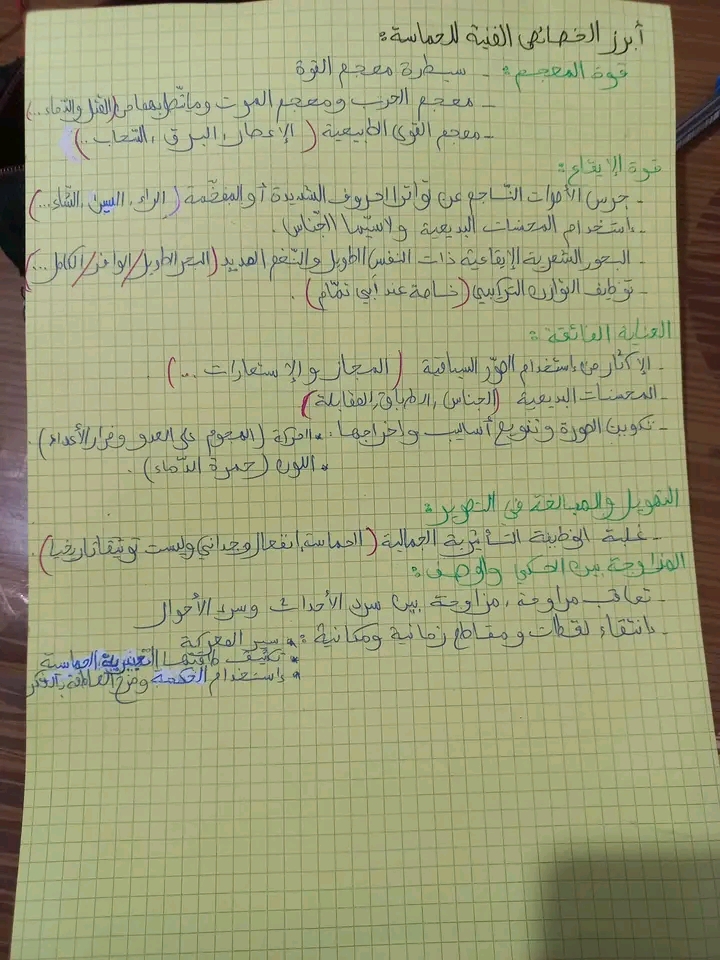 أبرز الخصائص الفنية للحماسة:
قوة المعجم: - سيطرة معجم القوة
- معجم الحرب ومعجم الموت وما يتصل بهما من (القتل والدماء...)
- معجم القوى الطبيعية (الإعصار، البرق، السحاب..)
قوة الإيقاع:
- جرس الأصوات الناجع عن تواتر الحروف الشديدة أو المفخمة (الراء، السين، الثاء...)
- استخدام المحسنات البديعية ولاسيما (الجناس).
- البحور الشعرية الإيقاعية ذات النفس الطويل والنغم المديد (البحر الطويل/الوافر/الكامل...)
- توظيف التوازن التركيبي (خاصة عند أبي تمام).
العناية الفائقة:
- الإكثار من استخدام الصور البيانية (المجاز والإستعارات...)
- المحسنات البديعية (الجناس، الطباق، المقابلة)
- تكوين الصورة وتنويع أساليب وإخراجها: * الحركة (الهجوم على العدو وفرار الأعداء).
* اللون (حمرة الدماء).
التهويل والمبالغة في التصوير:
- غلبة الوظيفة التأثيرية الجمالية (الحماسة إنفعال وجداني وليست توثيقا تاريخيا).
المزاوجة بين الحكي والوصف:
- تعاقب مراوحة، مزاوجة بين سرد الأحداث وسرد الأحوال
- انتقاء لقطات ومقاطع زمانية ومكانية: * سير المعركة
* تكثيف طاقتها التعبيرية الحماسة
* إستخدام الحكمة ومزج العاطفة بالفكر